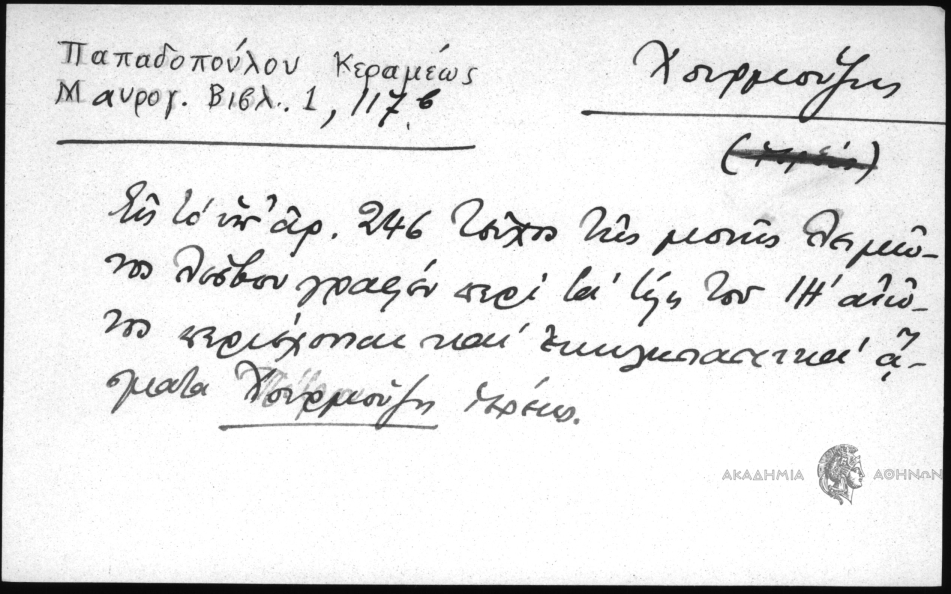 Παπαδοπούλου Κεραμέως
Μαυρογ. Βιβλ. 1, 117β
Χουρμούζης
(ἱερεύς)
Εἰς τὸ ὑπ' ἀρ. 246 τεῦχος τῆς μονῆς Λειμῶ-
νος Λέσβου γραφὲν περὶ τὰ τέλη τοῦ ΙΗ' αἰῶ-
νος περιέχονται καὶ ἐκκλησιαστικὰ ᾄ-
σματα Χουρμούζη ἱερέως.
ΑΚΑΔΗΜΙΑ ΑΘΗΝΩΝ